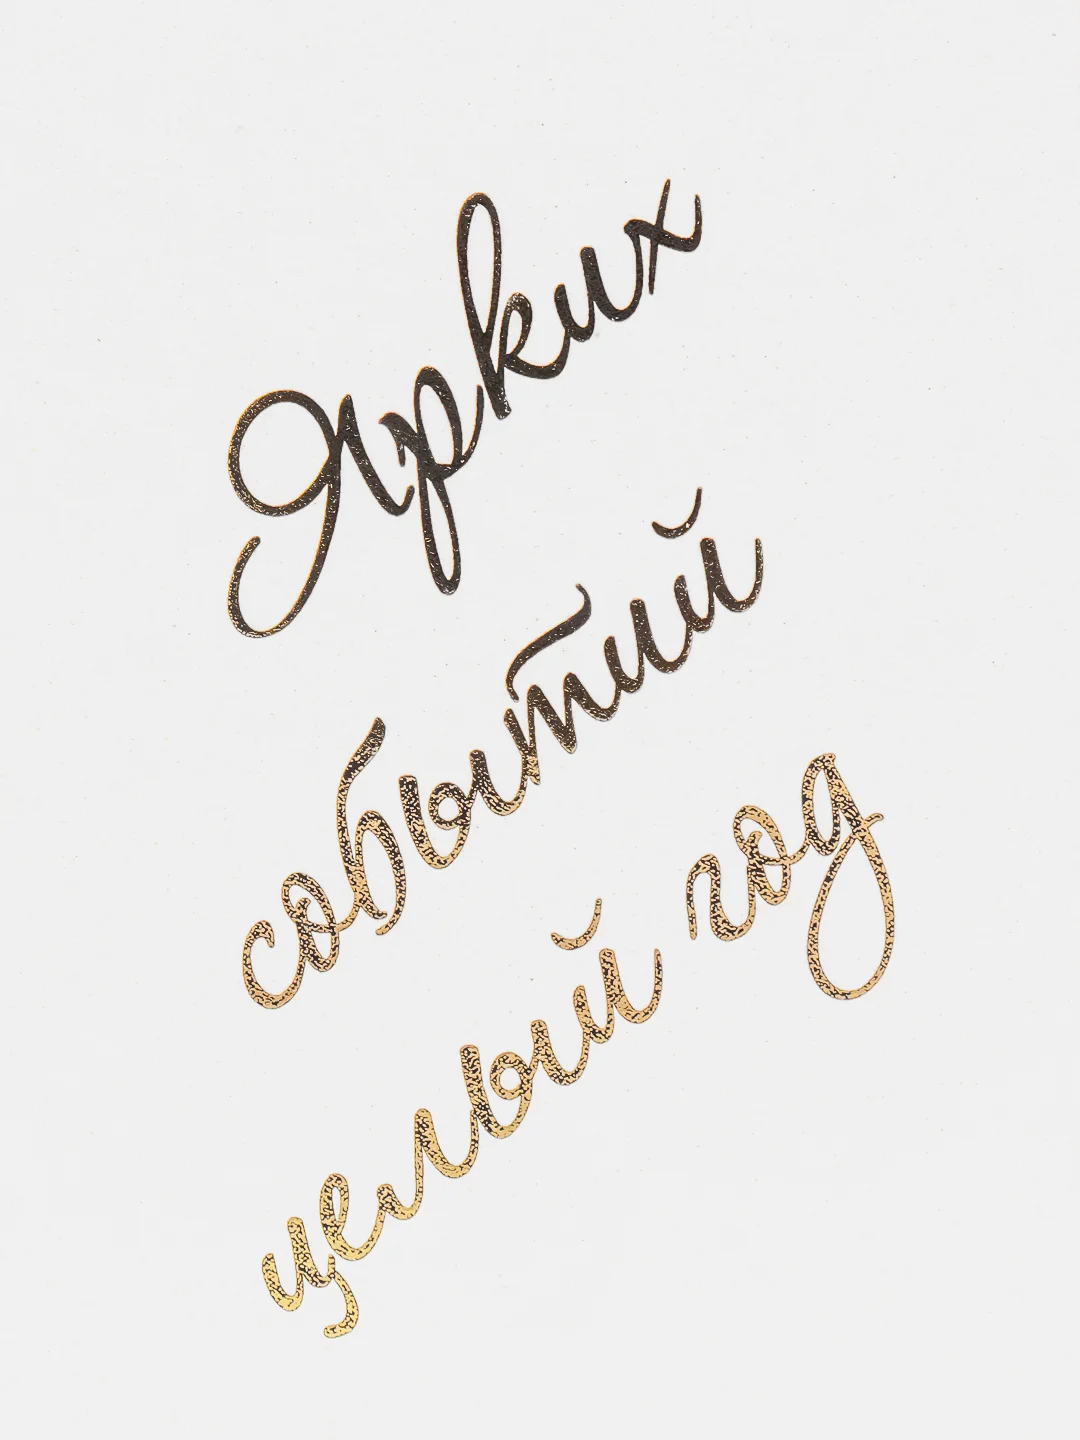 Ярких
событий
целый год